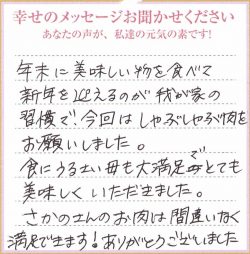 幸せのメッセージお聞かせください
あなたの声が、私達の元気の素です!
年末に美味しい物を食べて
新年を迎えるのが我が家の
習慣で、今回はしゃぶしゃぶ肉を
お願いしました。
食にうるさい母も大満足でとても
美味しくいただきました。
さかのさんのお肉は間違いなく
満足できます!ありがとうございました